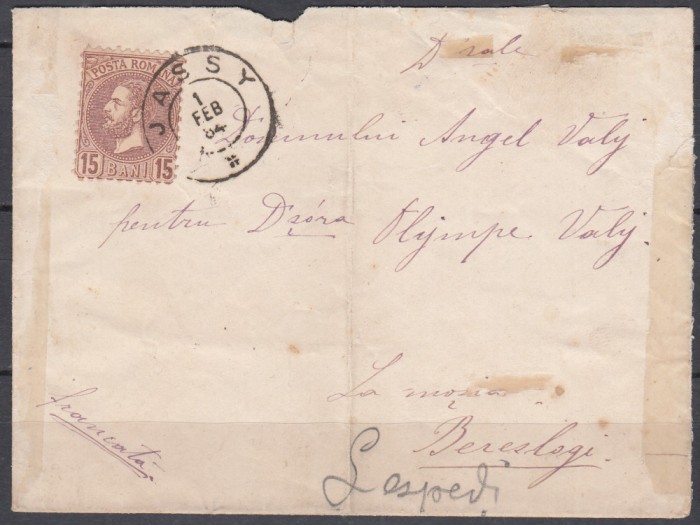 POSTA ROMANA
15 BANI 15
JASSY
1
FEB
84
D sale
Domnului Angel Valy
pentru D'șóra Olympe Valy.
La moșia
francata
Bereslogi.
Lespedi